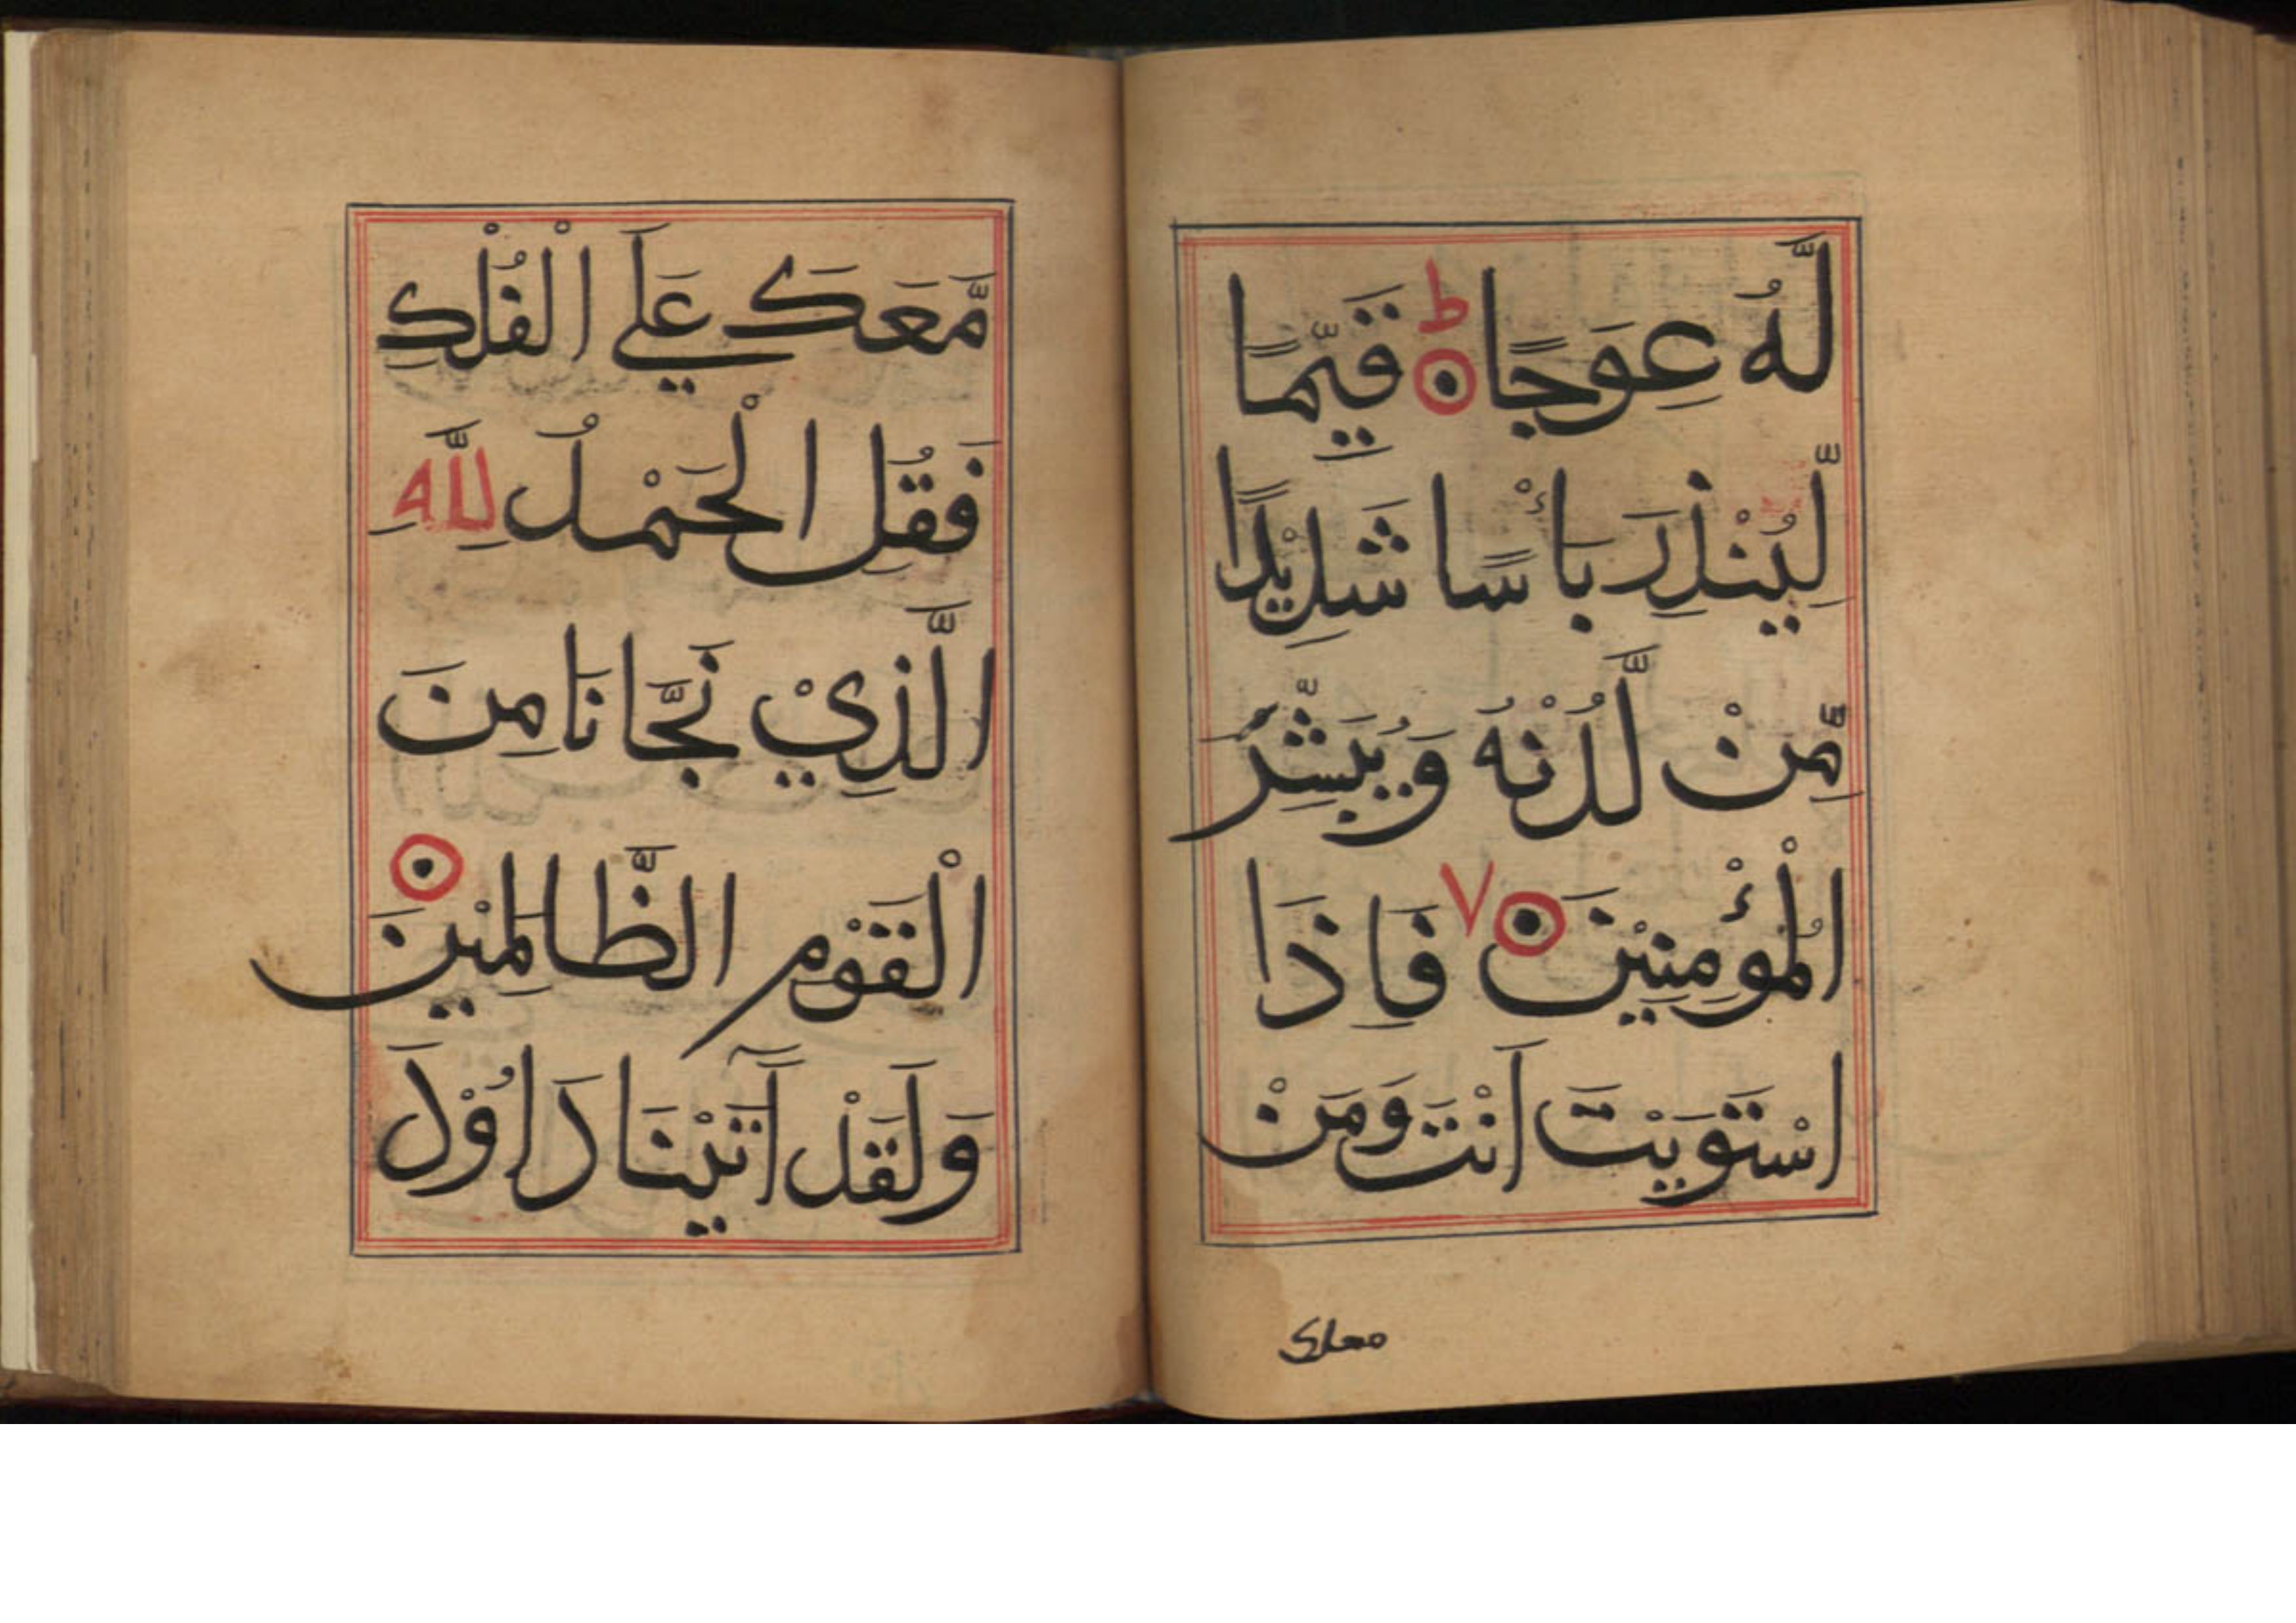 لَّهُ عِوَجًا ط قَيِّمًا
لِّيُنْذِرَ بَأْسًا شَدِيْدًا
مِّنْ لَّدُنْهُ وَيُبَشِّرُ
الْمُؤْمِنِيْنَ ٧ فَاِذَا
اسْتَوَيْتَ اَنْتَ وَمَنْ
معك
مَّعَكَ عَلَي الْفُلْكِ
فَقُلِ الْحَمْدُ لِلَّهِ
الَّذِيْ نَجَّانَا مِنَ
الْقَوْمِ الظَّالِمِيْنَ
وَلَقَدْ آتَيْنَا دَاوُدَ